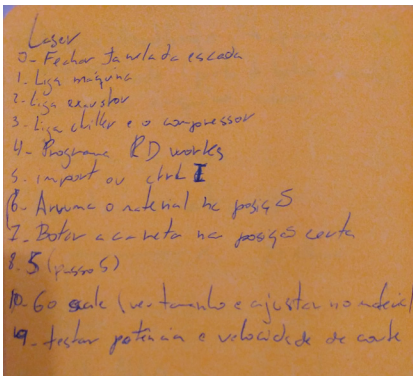 Laser
0- Fechar janela da escada
1. Liga máquina
2- Liga exaustor
3- Liga chiller e o compressor
4- Programa RD works
5. import ou ctrl I
6- Arruma o material na posiçS
7- Botar a caneta na posiçS certa
8. 5 (passo 5)
10. Go scale (ver tamanho e ajustar no material
9- testar potência e velocidade de corte